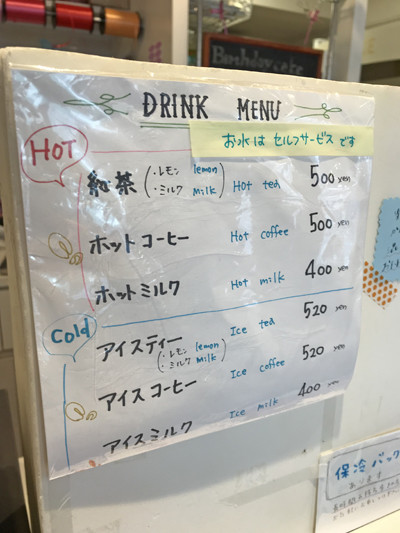 Birthday cake
DRINK MENU
お水は セルフサービス です
HOT
紅茶 (・レモン lemon ・ミルク milk) Hot tea 500 yen
ホットコーヒー Hot coffee 500 yen
ホットミルク Hot milk 400 yen
Cold
アイスティー (・レモン lemon ・ミルク milk) Ice tea 520 yen
アイスコーヒー Ice coffee 520 yen
アイスミルク Ice milk 400 yen
保冷バック
あります